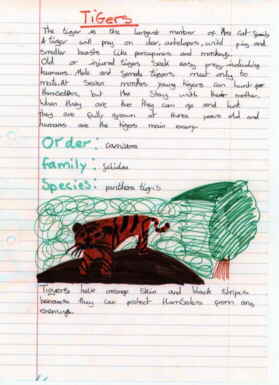 Tigers
The tiger is the largest member of the cat family
A tiger will prey on deer, antelopes, wild pigs and
smaller beasts like porcupines and monkeys.
Old or injured tigers seek easy prey including
humans. Male and female tigers meet only to
mate. At seven months young tigers can hunt for
themselves, but the stay with their mother.
When they are two they can go and hunt
they are fully grown at three years old and
humans are the tigers main enemy.
Order: carnivora
family: felidae
Species: panthera tigris
Tiggers have orange skin and black stripes
because they can protect themselves from any
enemys.